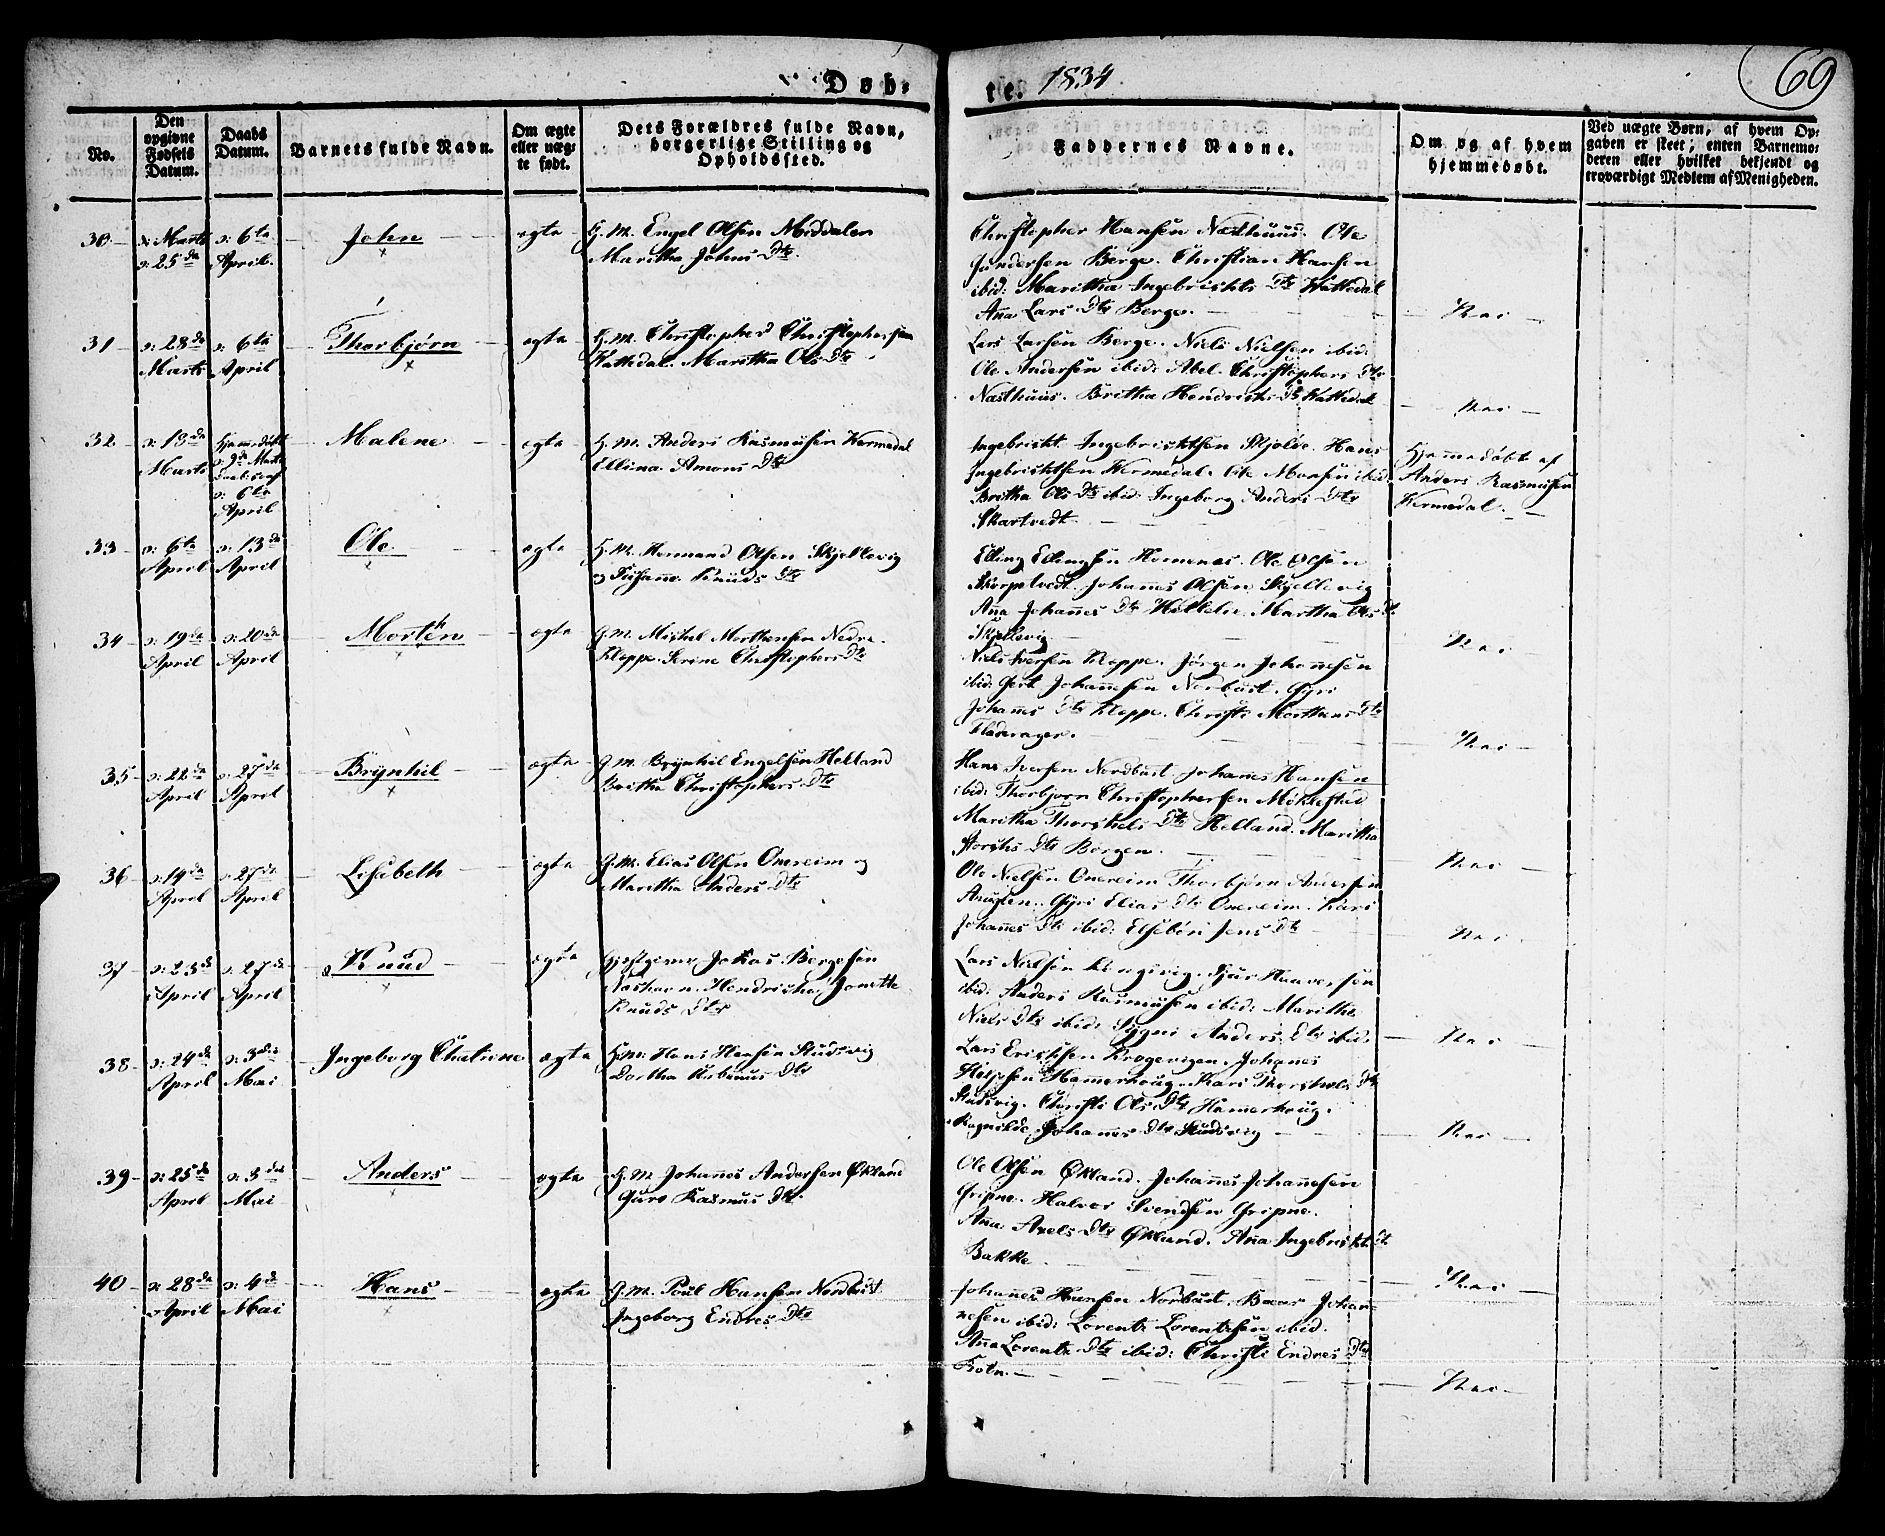 Døb-
te. 1834
69
No.
Den opgivne Fødsels Datum.
Daabs Datum.
Barnets fulde Navn.
Om ægte eller uægte født.
Dets Forældres fulde Navn, borgerlige Stilling og Opholdssted.
Faddernes Navne.
Om og af hvem hjemmedøbt.
Ved uægte Børn, af hvem Opgaven er skeet; enten Barnemoderen eller hvilket bekjendt og troværdigt Medlem af Menigheden.
30 Marts d: 25de
d: 6te April
John
ægte
G. M. Engel Olsen Middalen
Maritha Johns Dtr
Christopher Hansen Næsthuus. Ole
Gundersen Berge. Christian Hansen
ibid: Maritha Ingebrikts Dtr Wattedal
Ana Lars Dtr Berge.
Nei
31 d: 28de Marts
d: 6te April
Thorbjørn
ægte
G. M. Christopher Christophersen
Wattedal. Maritha Ols Dtr
Lars Larsen Berge. Niels Nielsen ibid:
Ole Andersen ibid: Abel Christophers Dtr
Næsthuus. Britha Hendriks Dtr Wattedal
Nei
32 d: 13de Marts
Hjemedøbt
April
Malene
ægte
G. M. Anders Rasmusen Wermedal
Ellina Amons Dtr
Ingebrikt Ingebriktsen Skjolde. Hans
Ingebriktsen Wermedal. Ole Monsen ibid:
Britha Ols Dtr ibid: Ingeborg Anders Dtr
Skartvedt.
Hjemmedøbt af
Anders Rasmusen
Wermedal.
33 d: 6te April
d: 13de April
Ole
ægte
G. M. Hermand Olsen Skjellevig
og Susanne Knuds Dtr
Elling Ellingsen Homenes. Ole Olsen
Thorpetvedt. Johannes Olsen Skjellevig
Ana Johannes Dtr Martha Ols Dt
Skjellevig
Nei
34 d: 19de April
d: 20de April
Morthen
ægte
G. M. Mikal Morthensen Nedre
Kloppe. Serine Christophers Dtr
Niels Iversen Kloppe. Jørgen Johannesen
ibid: Gert Johannesen Norbust. Gyri
Johannes Dtr Kloppe. Christi Morthens Dtr
Nei
35 d: 22de April
d: 27de April
Brynhil
ægte
G. M. Brynhil Engelsen Helland
Britha Christophers Dtr
Hans Iversen Nordbust. Johannes Hansen
ibid: Thorbjørn Christophersen Miklestad
Maritha Thorkels Dtr Helland. Maritha
Dtr Bergen.
Nei
36 d: 19de April
d: 27de April
Lisebeth
ægte
G. M. Elias Olsen Onereim og
Maritha Anders Dtr
Ole Nielsen Onereim. Thorbjørn Andersen
Gyri Elias Dtr Onereim. Kari
Johannes Dtr ibid: Jens Dtr
Nei
37 d: 23de April
d: 27de April
Knud
ægte
Gjestgiver Jokas Bergesen
Hendrikha Jonette
Knuds Dtr
Lars Nielsen Haaversen
ibid: Anders Rasmusen ibid: Marithe
Niels Dtr ibid: Sygni Anders Dtr ibid.
Nei
38 d: 24de April
d: 3die Mai
Ingeborg Chatrine
ægte
G. M. Hans Hansen Studsvig
Dortha Dtr
Lars Eriksen Krogevigen. Johannes
Hamerhoug. Kari Thorkels Dtr
Studsvig. Christi Ols Dtr Hamerhoug.
Ragnilde Johannes Dtr Studsvig
Nei
39 d: 25de April
d: 3die Mai
Anders
ægte
G. M. Johannes Andersen Økland
Guro Rasmus Dtr
Ole Olsen Økland. Johannes Johannesen
Gripne. Halvor Svendsen Gripne.
Ana Axels Dtr Økland. Ana Ingebrikts Dt
Bakke.
Nei
40 d: 28de April
d: 4de Mai
Hans
ægte
G. M. Poul Hansen Nordbust
Ingeborg Endres Dtr
Johannes Hansen Norbust. Baar Johan-
nesen ibid: Lorents Lorentsen ibid.
Ana Lorents Dtr ibid: Christi Endres Dtr
Nei